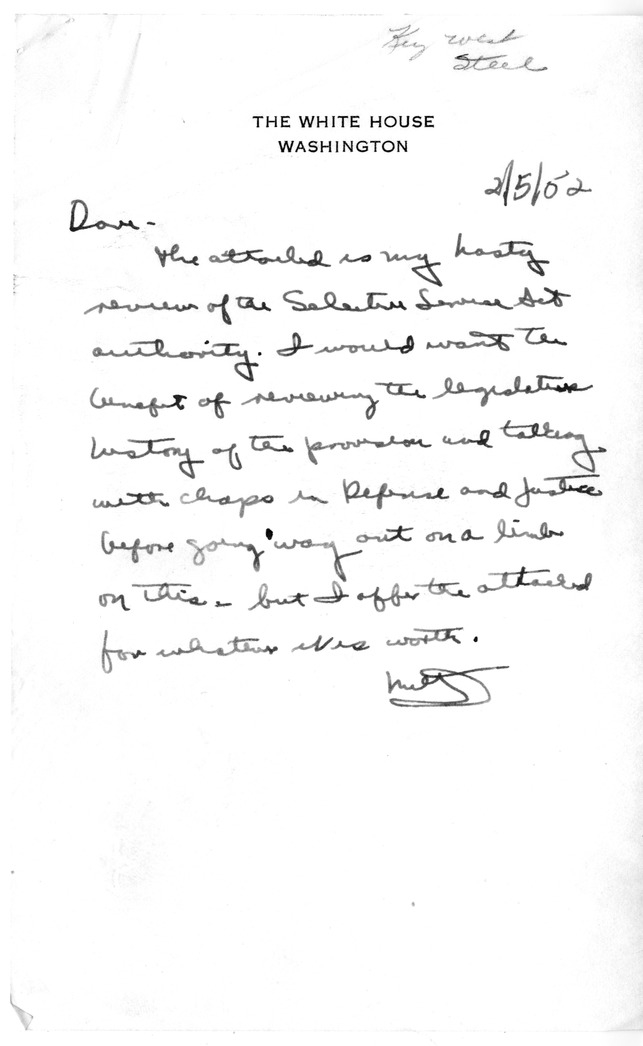 Key West
Steel
THE WHITE HOUSE
WASHINGTON
2/5/52
Dave -
The attached is my hasty
review of the Selective Service Act
authority. I would want the
benefit of reviewing the legislative
history of the provision and talking
with chaps in Defense and Justice
before going 'way out on a limb
on this - but I offer the attached
for whatever it is worth.
Milt